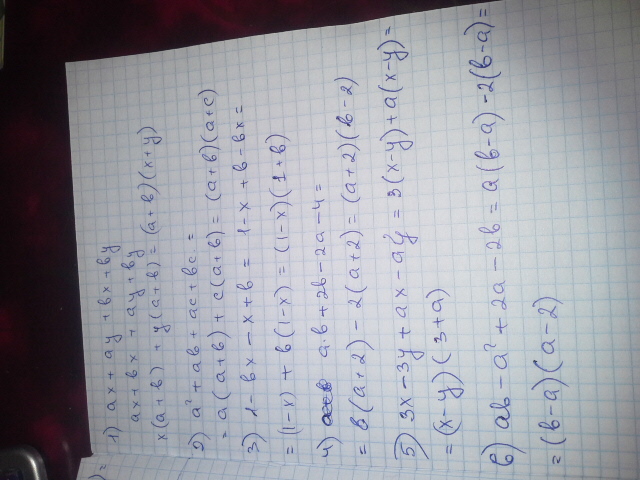 ) =
1) ax + ay + bx + by
ax + bx + ay + by
x(a+b) + y(a+b) = (a+b)(x+y)
2) a² + ab + ac + bc =
= a(a+b) + c(a+b) = (a+b)(a+c)
3) 1 - bx - x + b = 1 - x + b - bx =
= (1-x) + b(1-x) = (1-x)(1+b)
4) a·b + 2b - 2a - 4 =
= b(a+2) - 2(a+2) = (a+2)(b-2)
5) 3x - 3y + ax - ay = 3(x-y) + a(x-y) =
= (x-y)(3+a)
6) ab - a² + 2a - 2b = a(b-a) - 2(b-a) =
= (b-a)(a-2)